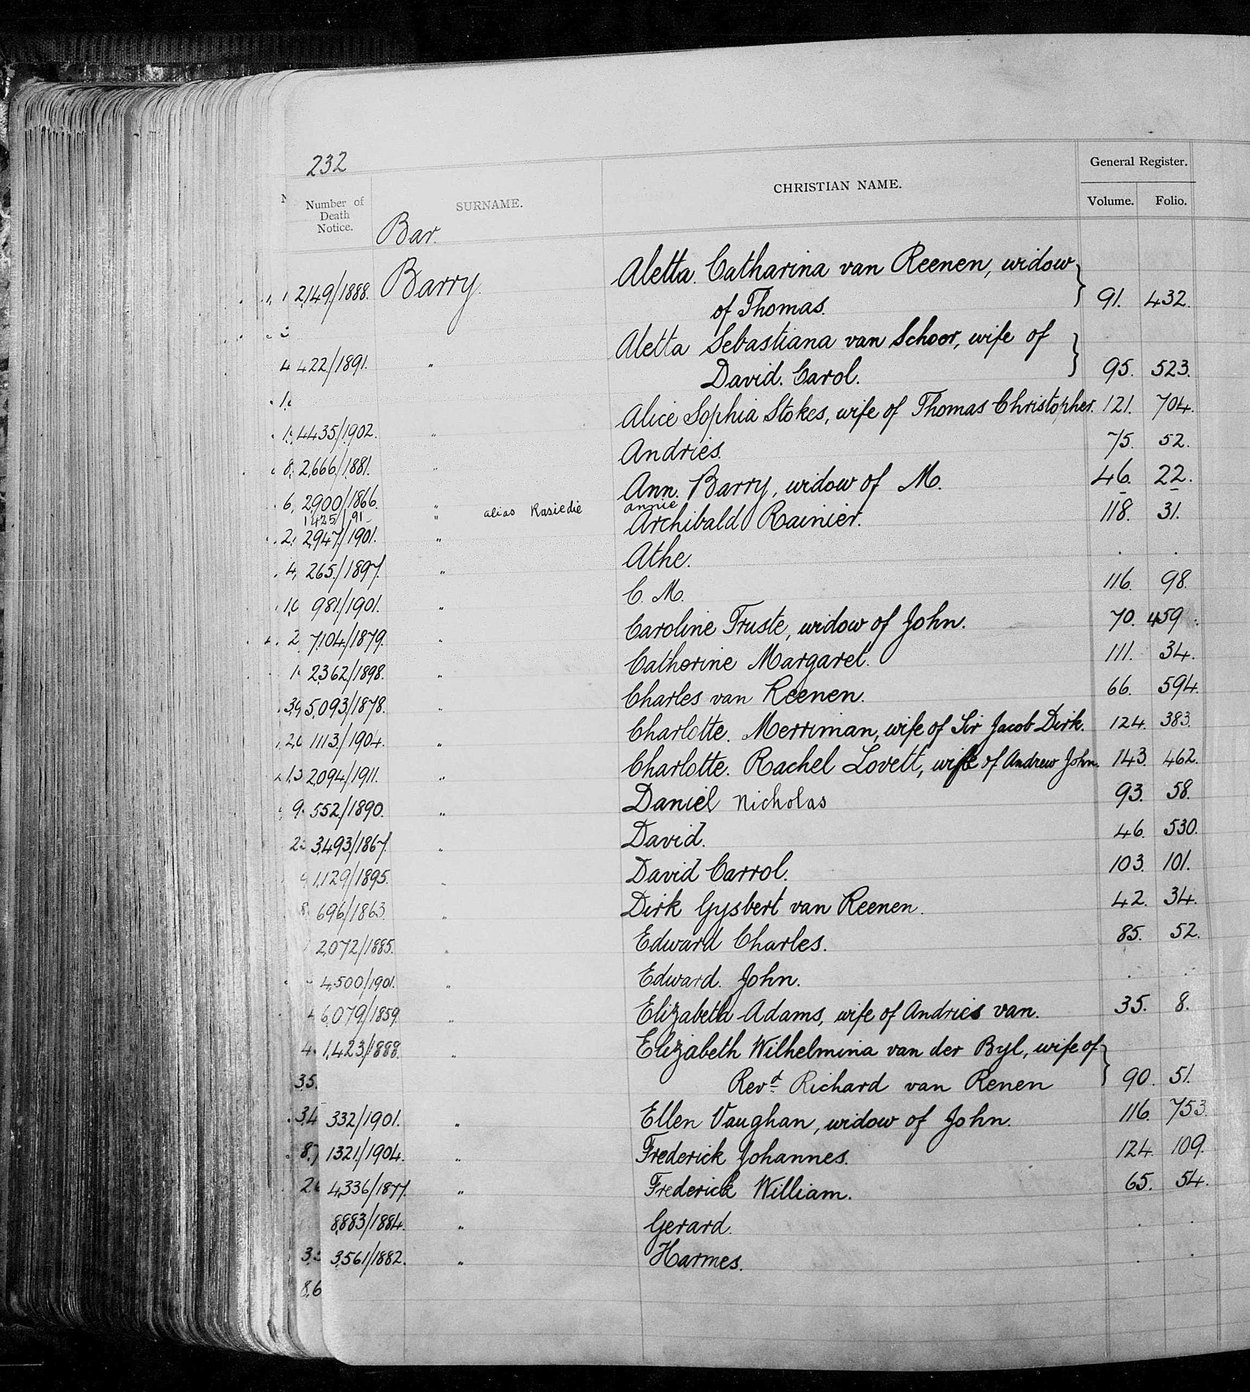 232
General Register.
Number of Death Notice. SURNAME. CHRISTIAN NAME. Volume. Folio.
Bar.
2,149/1888. Barry. Aletta Catharina van Reenen, widow
of Thomas. 91. 432.
422/1891. " Aletta Sebastiana van Schoor, wife of
David Carol. 95. 523.
Alice Sophia Stokes, wife of Thomas Christopher. 121. 704.
4435/1902. " Andries. 75. 52.
2,666/1881. " Ann Barry, widow of M. 46. 22.
2900/1866. " alias Kasiedie annie
1425/91 " Archibald Rainier. 118. 31.
2,947/1901. " Athe.
265/1897. " C. M. 116. 98.
981/1901. " Caroline Truste, widow of John. 70. 459.
7,104/1879. " Catherine Margaret. 111. 34.
2,362/1898. " Charles van Reenen. 66. 594.
5,093/1878. " Charlotte Merriman, wife of Sir Jacob Dirk. 124. 383.
1113/1904. " Charlotte Rachel Lovett, wife of Andrew John. 143. 462.
2094/1911. " Daniel Nicholas 93. 58.
552/1890. " David. 46. 530.
3,493/1867. " David Carrol. 103. 101.
1,129/1895. " Dirk Gysbert van Reenen. 42. 34.
696/1863. " Edward Charles. 85. 52.
2,072/1885. " Edward John.
4,500/1901. " Elizabeth Adams, wife of Andries van. 35. 8.
6,079/1859. " Elizabeth Wilhelmina van der Byl, wife of
1,423/1888. " Revd. Richard van Renen 90. 51.
332/1901. " Ellen Vaughan, widow of John. 116. 753.
1321/1904. " Frederick Johannes. 124. 109.
4,336/1877. " Frederick William. 65. 54.
8,883/1884. " Gerard.
3,561/1882. " Harmes.